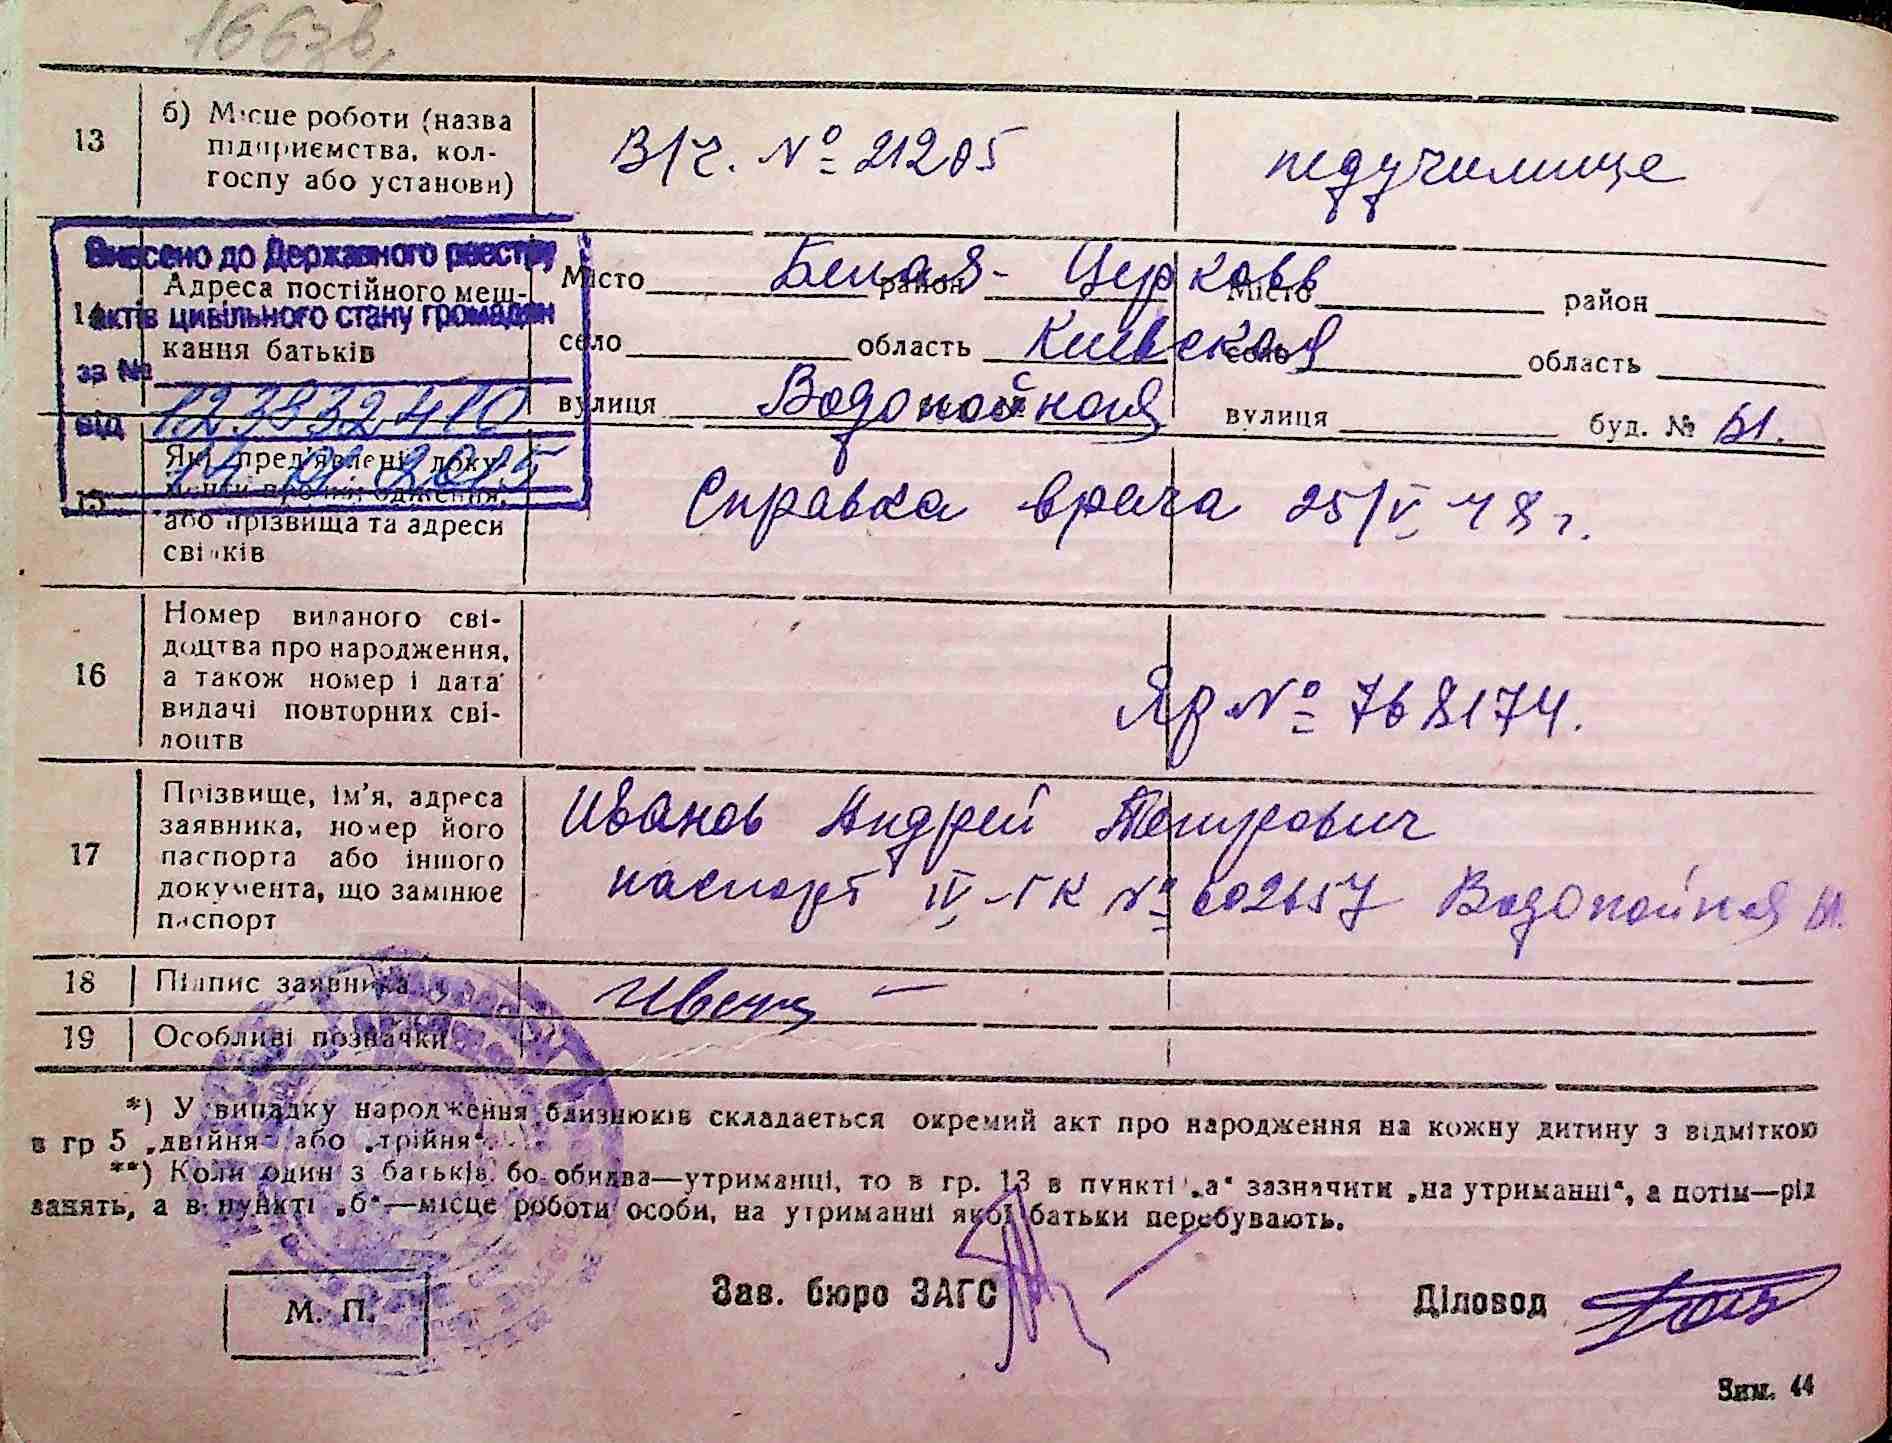 166зв.
13 б) Місце роботи (назва
підприємства, кол-
госпу або установи)
В/ч. № 21205 педучилище
Внесено до Державного реєстру
актів цивільного стану громадян
за №
від
14 Адреса постійного меш-
кання батьків
Місто Белая- район Церковь Місто район
село область Киевская село область
вулиця Водопойная вулиця буд. №
15 Які пред'явлені доку-
менти про народження,
або прізвища та адреси
свідків
Справка врача 25/V 48 г.
16 Номер виданого сві-
доцтва про народження,
а також номер і дата
видачі повторних сві-
доцтв
Яр № 768174.
17 Прізвище, ім'я, адреса
заявника, номер його
паспорта або іншого
документа, що замінює
паспорт
Иванов Андрей Петрович
паспорт IV № Водопойная
18 Підпис заявника
19 Особливі позначки
*) У випадку народження близнюків складається окремий акт про народження на кожну дитину з відміткою
в гр 5 „двійня“ або „трійня“.
**) Коли один з батьків, бо обидва—утриманці, то в гр. 13 в пункті „а“ зазначити „на утриманні“, а потім—рід
занять, а в пункті „б“—місце роботи особи, на утриманні якої батьки перебувають.
М. П.
Зав. бюро ЗАГС
Діловод
Зим. 44